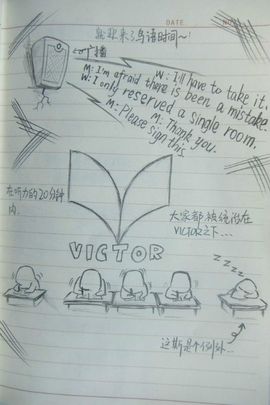 DATE
来了鸟语时间~!
广播
W: I'll have to take it.
M: I'm afraid there is been a mistake.
W: I only reserved a single room.
M: Thank you.
M: Please sign this
在听力的20分钟
内,
大家都被统治在
VICTOR之下...
VICTOR
ZZZZ
这斯是个例外...